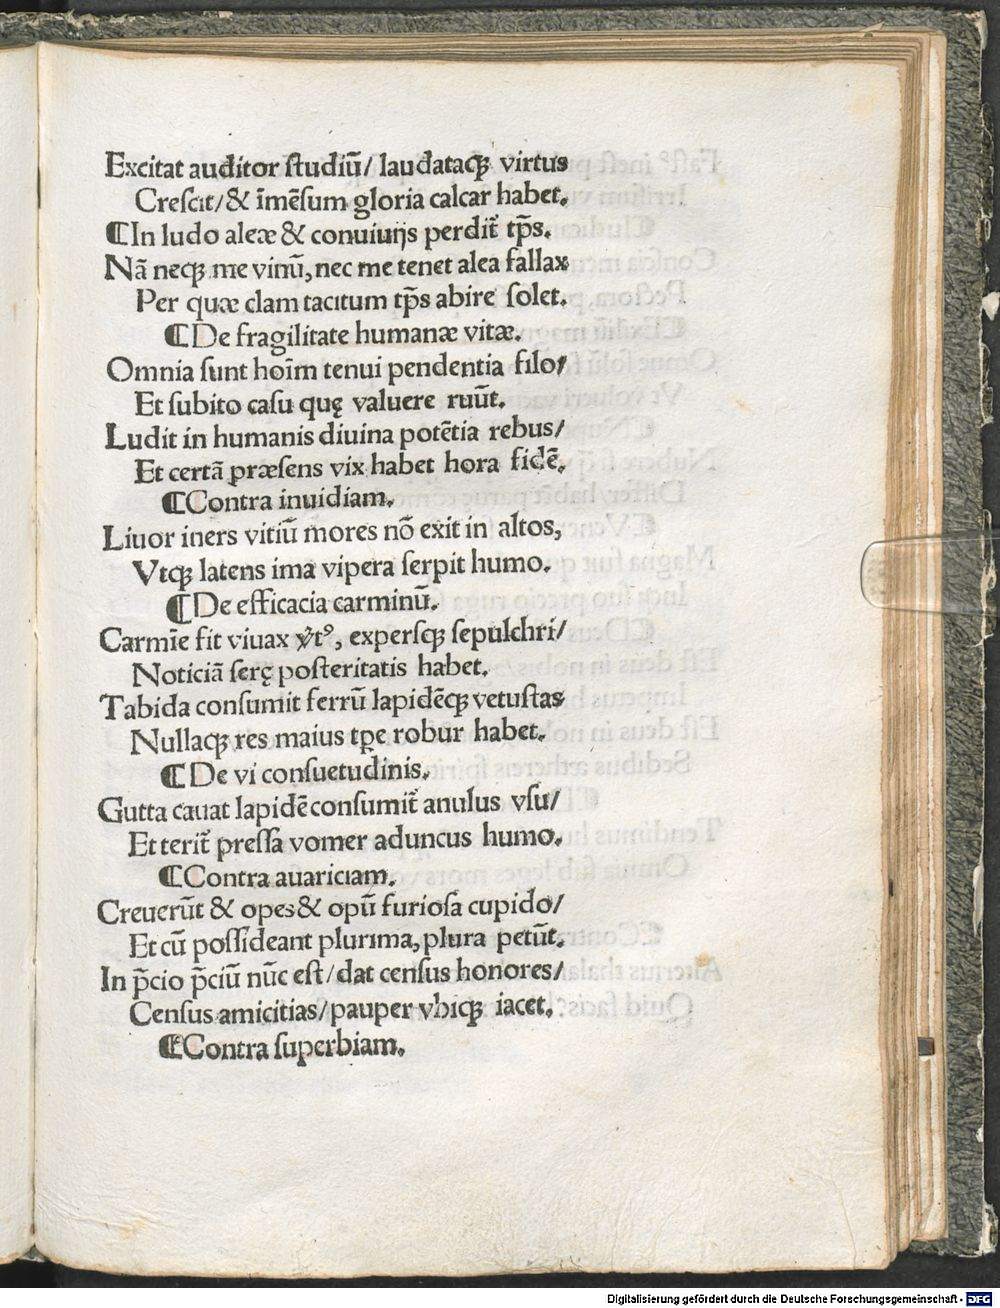 Excitat auditor ſtudiū/ laudataqꝫ virtus
Creſcit/ & īmēſum gloria calcar habet.
¶In ludo aleæ & conuiuijs perdit̄ tp̄s.
Nā neqꝫ me vinū, nec me tenet alea fallax
Per quæ clam tacitum tp̄s abire ſolet.
¶De fragilitate humanæ vitæ.
Omnia ſunt hoīm tenui pendentia filo/
Et ſubito caſu quę valuere ruūt.
Ludit in humanis diuina potētia rebus/
Et certā præſens vix habet hora fidē.
¶Contra inuidiam.
Liuor iners vitiū mores nō exit in altos,
Vtqꝫ latens ima vipera ſerpit humo.
¶De efficacia carminū.
Carmīe fit viuax v̄tꝰ, experſqꝫ ſepulchri/
Noticiā ſerę poſteritatis habet.
Tabida conſumit ferrū lapidēqꝫ vetuſtas
Nullaqꝫ res maius tꝑe robur habet.
¶De vi conſuetudinis.
Gutta cauat lapidē conſumit̄ anulus vſu/
Et terit̄ preſſa vomer aduncus humo.
¶Contra auariciam.
Creuerūt & opes & opū furioſa cupido/
Et cū poſſideant plurima, plura petūt.
In p̄cio p̄ciū nūc eſt/ dat cenſus honores/
Cenſus amicitias/ pauper vbiqꝫ iacet.
¶Contra ſuperbiam.
Digitalisierung gefördert durch die Deutsche Forschungsgemeinschaft - DFG